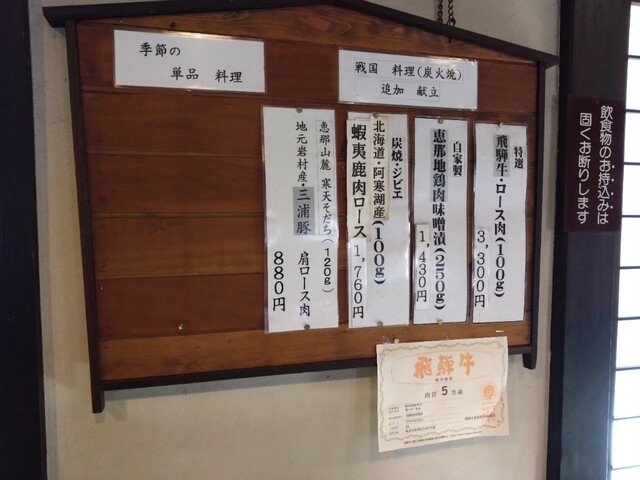 季節の
単品 料理
戦国 料理(炭火焼)
追加 献立
特選
飛騨牛・ロース肉(100g)
3,300円
自家製
恵那地鶏肉味噌漬(250g)
1,430円
炭焼・ジビエ
北海道・阿寒湖産(100g)
蝦夷鹿肉ロース 1,760円
恵那山麓 寒天そだち(120g)
地元岩村産・三浦豚 肩ロース肉
880円
飲食物のお持込みは
固くお断りします
飛騨牛
肉質 5 等級